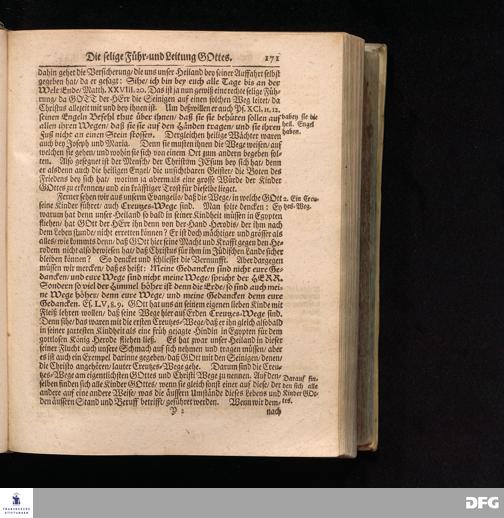 Die selige Führ-und Leitung GOttes. 171
dahin gehet die Versicherung/ die uns unser Heiland bey seiner Auffahrt selbst
gegeben hat/ da er gesagt: Sihe/ ich bin bey euch alle Tage bis an der
Welt Ende/ Matth. XXVIII. 20. Das ist ja nun gewiß eine rechte selige Füh-
rung/ da GOTT der HErr die Seinigen auf einen solchen Weg leitet/ da
Christus allezeit mit und bey ihnen ist. Und deßwillen er auch Ps. XCI. 11, 12.
seinen Engeln Befehl thut über ihnen/ daß sie sie behüten sollen auf
allen ihren Wegen/ daß sie sie auf den Händen tragen/ und sie ihren
Fuß nicht an einen Stein stossen. Dergleichen heilige Wächter waren
auch bey Joseph und Maria. Denn sie musten ihnen die Wege weisen/ auf
welchen sie gehen/ und wohin sie sich von einem Ort zum andern begeben sol-
ten. Also gesegnet ist der Mensch/ der Christum JEsum bey sich hat/ denn
er alsdenn auch die heiligen Engel/ die unsichtbaren Geister/ die Boten des
Friedens bey sich hat/ worinn ja abermals eine grosse Würde der Kinder
GOttes zu erkennen/ und ein kräfftiger Trost für dieselbe lieget.
dabey sie die
heil. Engel
haben.
Ferner sehen wir aus unserm Evangelio/ daß die Wege/ in welche GOtt
seine Kinder führet/ auch Creutzes-Wege sind. Man solte dencken: Ey
warum hat denn unser Heiland so bald in seiner Kindheit müssen in Egypten
fliehen/ hat GOtt der HErr ihn denn von der Hand Herodis/ der ihm nach
dem Leben stunde/ nicht erretten können? Er ist doch mächtiger und grösser als
alles/ wie kommts denn/ daß GOtt hier seine Macht und Krafft gegen den He-
rodem nicht also bewiesen hat/ daß Christus für ihm im Jüdischen Lande sicher
bleiben können? So dencket und schliesset die Vernunfft. Aber dargegen
müssen wir mercken/ daß es heißt: Meine Gedancken sind nicht eure Ge-
dancken/ und eure Wege sind nicht meine Wege/ spricht der HERR.
Sondern so viel der Himmel höher ist denn die Erde/ so sind auch mei-
ne Wege höher/ denn eure Wege/ und meine Gedancken denn eure
Gedancken. Es. LV, 8. 9. GOtt hat uns an seinem eigenen lieben Kinde mit
Fleiß lehren wollen/ daß seine Wege hier auf Erden Creutzes-Wege sind.
Denn sihe/ das waren mit die ersten Creutzes-Wege/ daß er ihn gleich alsobald
in seiner zartesten Kindheit als eine früh gejagte Hindin in Egypten für dem
gottlosen König Herode fliehen ließ. Es hat zwar unser Heiland in dieser
seiner Flucht auch unsere Schmach auf sich nehmen und tragen müssen/ aber
es ist auch ein Exempel darinne gegeben/ daß GOtt mit den Seinigen/ denen/
die Christo angehören/ lauter Creutzes-Wege gehe. Darum sind die Creu-
tzes-Wege am eigentlichsten GOttes und Christi Wege zu nennen. Auf den-
selben finden sich alle Kinder GOttes/ wenn sie gleich sonst einer auf diese/ der
andere auf eine andere Weise/ was die äussern Umstände dieses Lebens und
den äussern Stand und Beruff betrifft/ geführet werden. Wenn wir dem-
2. Ein Creu-
tzes-Weg.
Darauf fin-
den sich alle
Kinder GOt-
tes.
Y 2 nach
FRANCKESCHE
STIFTUNGEN
DFG